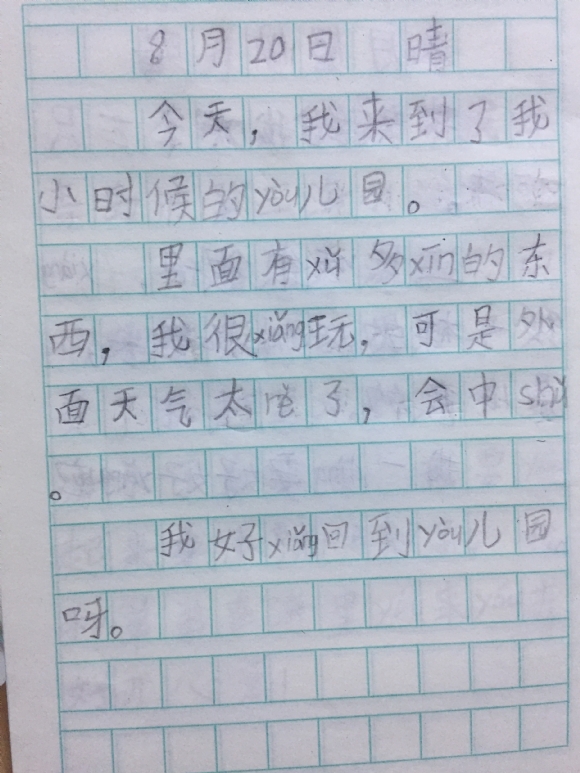 8月20日 晴
今天，我来到了我
小时候的yòu儿园。
里面有xǔ多xīn的东
西，我很xiǎng玩，可是外
面天气太rè了，会中shǔ
。
我好xiǎng回到yòu儿园
呀。